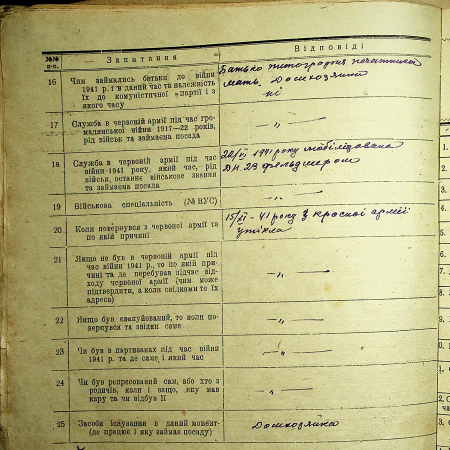 №№ п-п.
Запитання
Відповіді
16
Чим займались батьки до війни
1941 р. і в даний час та належність
їх до комуністичної партії і з
якого часу
Батько типографія печатник
мать. Домхозяйка
ні
17
Служба в червоній армії під час гро-
мадянської війни 1917—22 років,
рід військ та займаєма посада
— „ —
18
Служба в червоній армії під час
війни 1941 року, який час, рід
військ, останнє військове звання
та займаєма посада
22/VI 1941 року мобілідована
ДН. 23 фельдшером
19
Військова спеціяльність (№ ВУС)
— „ —
20
Коли повернувся з червоної армії та
по якій причині
15/XI - 41 року з красної армії
утікла
21
Якщо не був в червоній армії під
час війни 1941 р., то по якій при-
чині та де перебував підчас від-
ходу червоної армії (чим може
підтвердити, а коли свідками то їх
адреса)
— „ —
22
Якщо був евакуйований, то коли по-
вернувся та звідки саме
— „ —
23
Чи був в партизанах під час війни
1941 р. та де саме і який час
— „ —
24
Чи був репресований сам, або хто з
родичів, коли і защо, яку мав
кару та чи відбув її
— „ —
25
Засоби існування в даний момент-
(де працює і яку займає посаду)
Домхозяйка